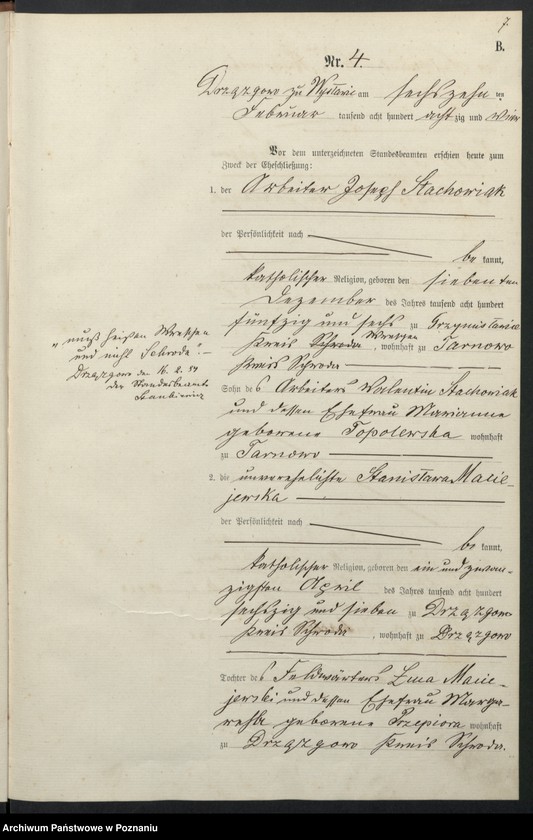 7.
B.
Nr. 4.
Drzązgowo zu Wysławic am sechszehn ten
Februar tausend acht hundert achtzig und vier
Vor dem unterzeichneten Standesbeamten erschien heute zum
Zweck der Eheschließung:
1. der Arbeiter Joseph Stachowiak
der Persönlichkeit nach
be kannt,
katholischer Religion, geboren den siebenten
Dezember des Jahres tausend acht hundert
fünfzig und sechs zu
Wreschen
Kreis Schroda, wohnhaft zu Tarnowo
Kreis Schroda
„muß heißen Wreschen
und nicht Schroda“.
Drzązgowo den 16. 2. 84
der Standesbeamte
Stankiewicz
Sohn des Arbeiters Valentin Stachowiak
und dessen Ehefrau Marianne
geborene Topolewska wohnhaft
zu Tarnowo
2. die unverehelichte Stanisława Macie-
jewska
der Persönlichkeit nach
be kannt,
katholischer Religion, geboren den ein und zwan-
zigsten April des Jahres tausend acht hundert
sechszig und sieben zu Drzązgowo
Kreis Schroda, wohnhaft zu Drzązgowo
Tochter des Feldwärters Macie-
jewski und dessen Ehefrau Marga-
retha geborene Przepiora wohnhaft
zu Drzązgowo Kreis Schroda.
Archiwum Państwowe w Poznaniu